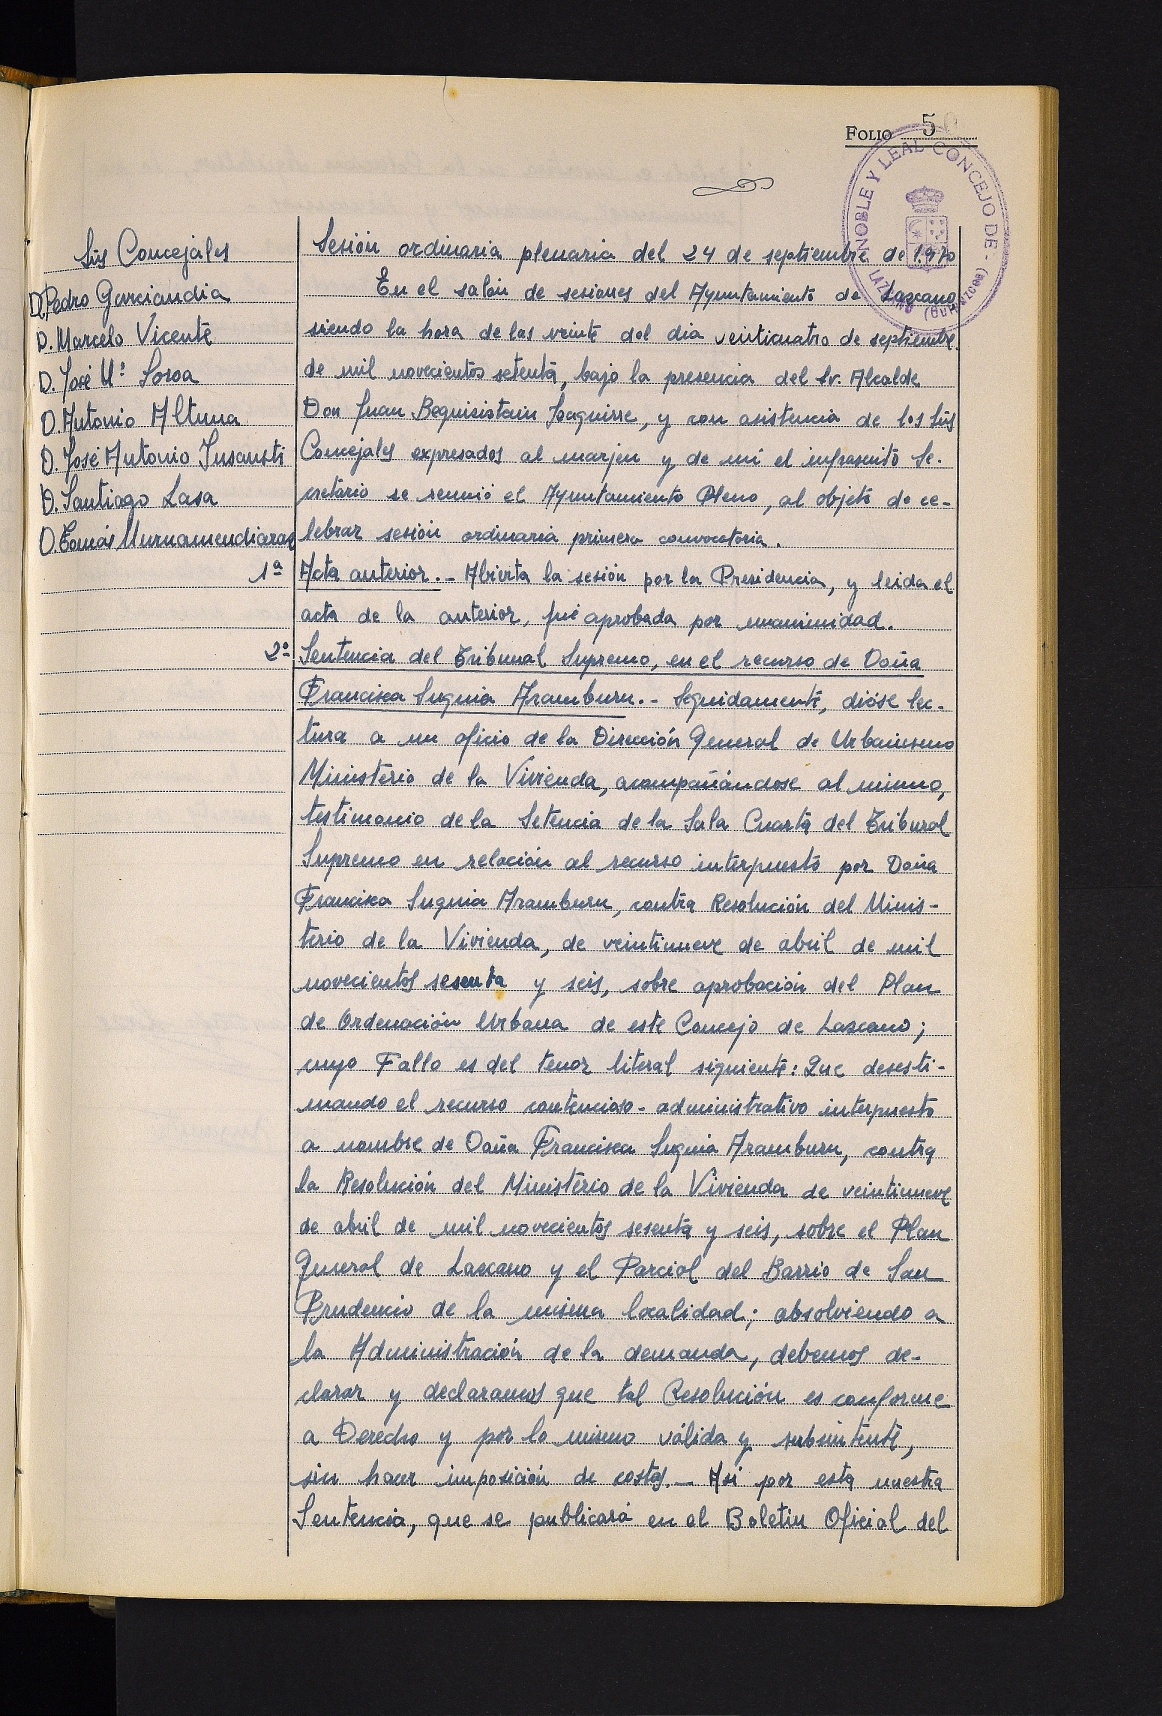 FOLIO 5
NOBLE Y LEAL CONCEJO DE - LAZCANO (Guipúzcoa)
Srs Concejales
D. Pedro Garciandia
D. Marcelo Vicente
D. José Mª Soroa
D. Antonio Altuna
D. José Antonio Insausti
D. Santiago Lasa
D. Tomás Murnamendiaraz
Sesión ordinaria plenaria del 24 de septiembre de 1970
En el salón de sesiones del Ayuntamiento de Lazcano
siendo la hora de las veinte del dia veinticuatro de septiembre
de mil novecientos setenta, bajo la presencia del Sr. Alcalde
Don Juan Beguisistain Izaguirre, y con asistencia de los Srs
Concejales expresados al marjen y de mi el infrascrito Se-
cretario se reunió el Ayuntamiento Pleno, al objeto de ce-
lebrar sesión ordinaria primera convocatoria.
1ª Acta anterior.- Abierta la sesión por la Presidencia, y leida el
acta de la anterior, fué aprobada por unanimidad.
2ª Sentencia del Tribunal Supremo, en el recurso de Doña
Francisca Suquia Aramburu.- Seguidamente, dióse lec-
tura a un oficio de la Dirección General de Urbanismo
Ministerio de la Vivienda, acompañándose al mismo,
testimonio de la Setencia de la Sala Cuarta del Tribunal
Supremo en relación al recurso interpuesto por Doña
Francisca Suquia Aramburu, contra Resolución del Minis-
terio de la Vivienda, de veintinueve de abril de mil
novecientos sesenta y seis, sobre aprobación del Plan
de Ordenación Urbana de este Concejo de Lazcano;
cuyo Fallo es del tenor literal siguiente: Que desesti-
mando el recurso contencioso-administrativo interpuesto
a nombre de Doña Francisca Suquia Aramburu, contra
la Resolución del Ministerio de la Vivienda de veintinueve
de abril de mil novecientos sesenta y seis, sobre el Plan
General de Lazcano y el Parcial del Barrio de San
Prudencio de la misma localidad; absolviendo a
la Administración de la demanda, debemos de-
clarar y declaramos que tal Resolución es conforme
a Derecho y por lo mismo válida y subsistente,
sin hacer imposición de costas.- Asi por esta nuestra
Sentencia, que se publicará en el Boletin Oficial del